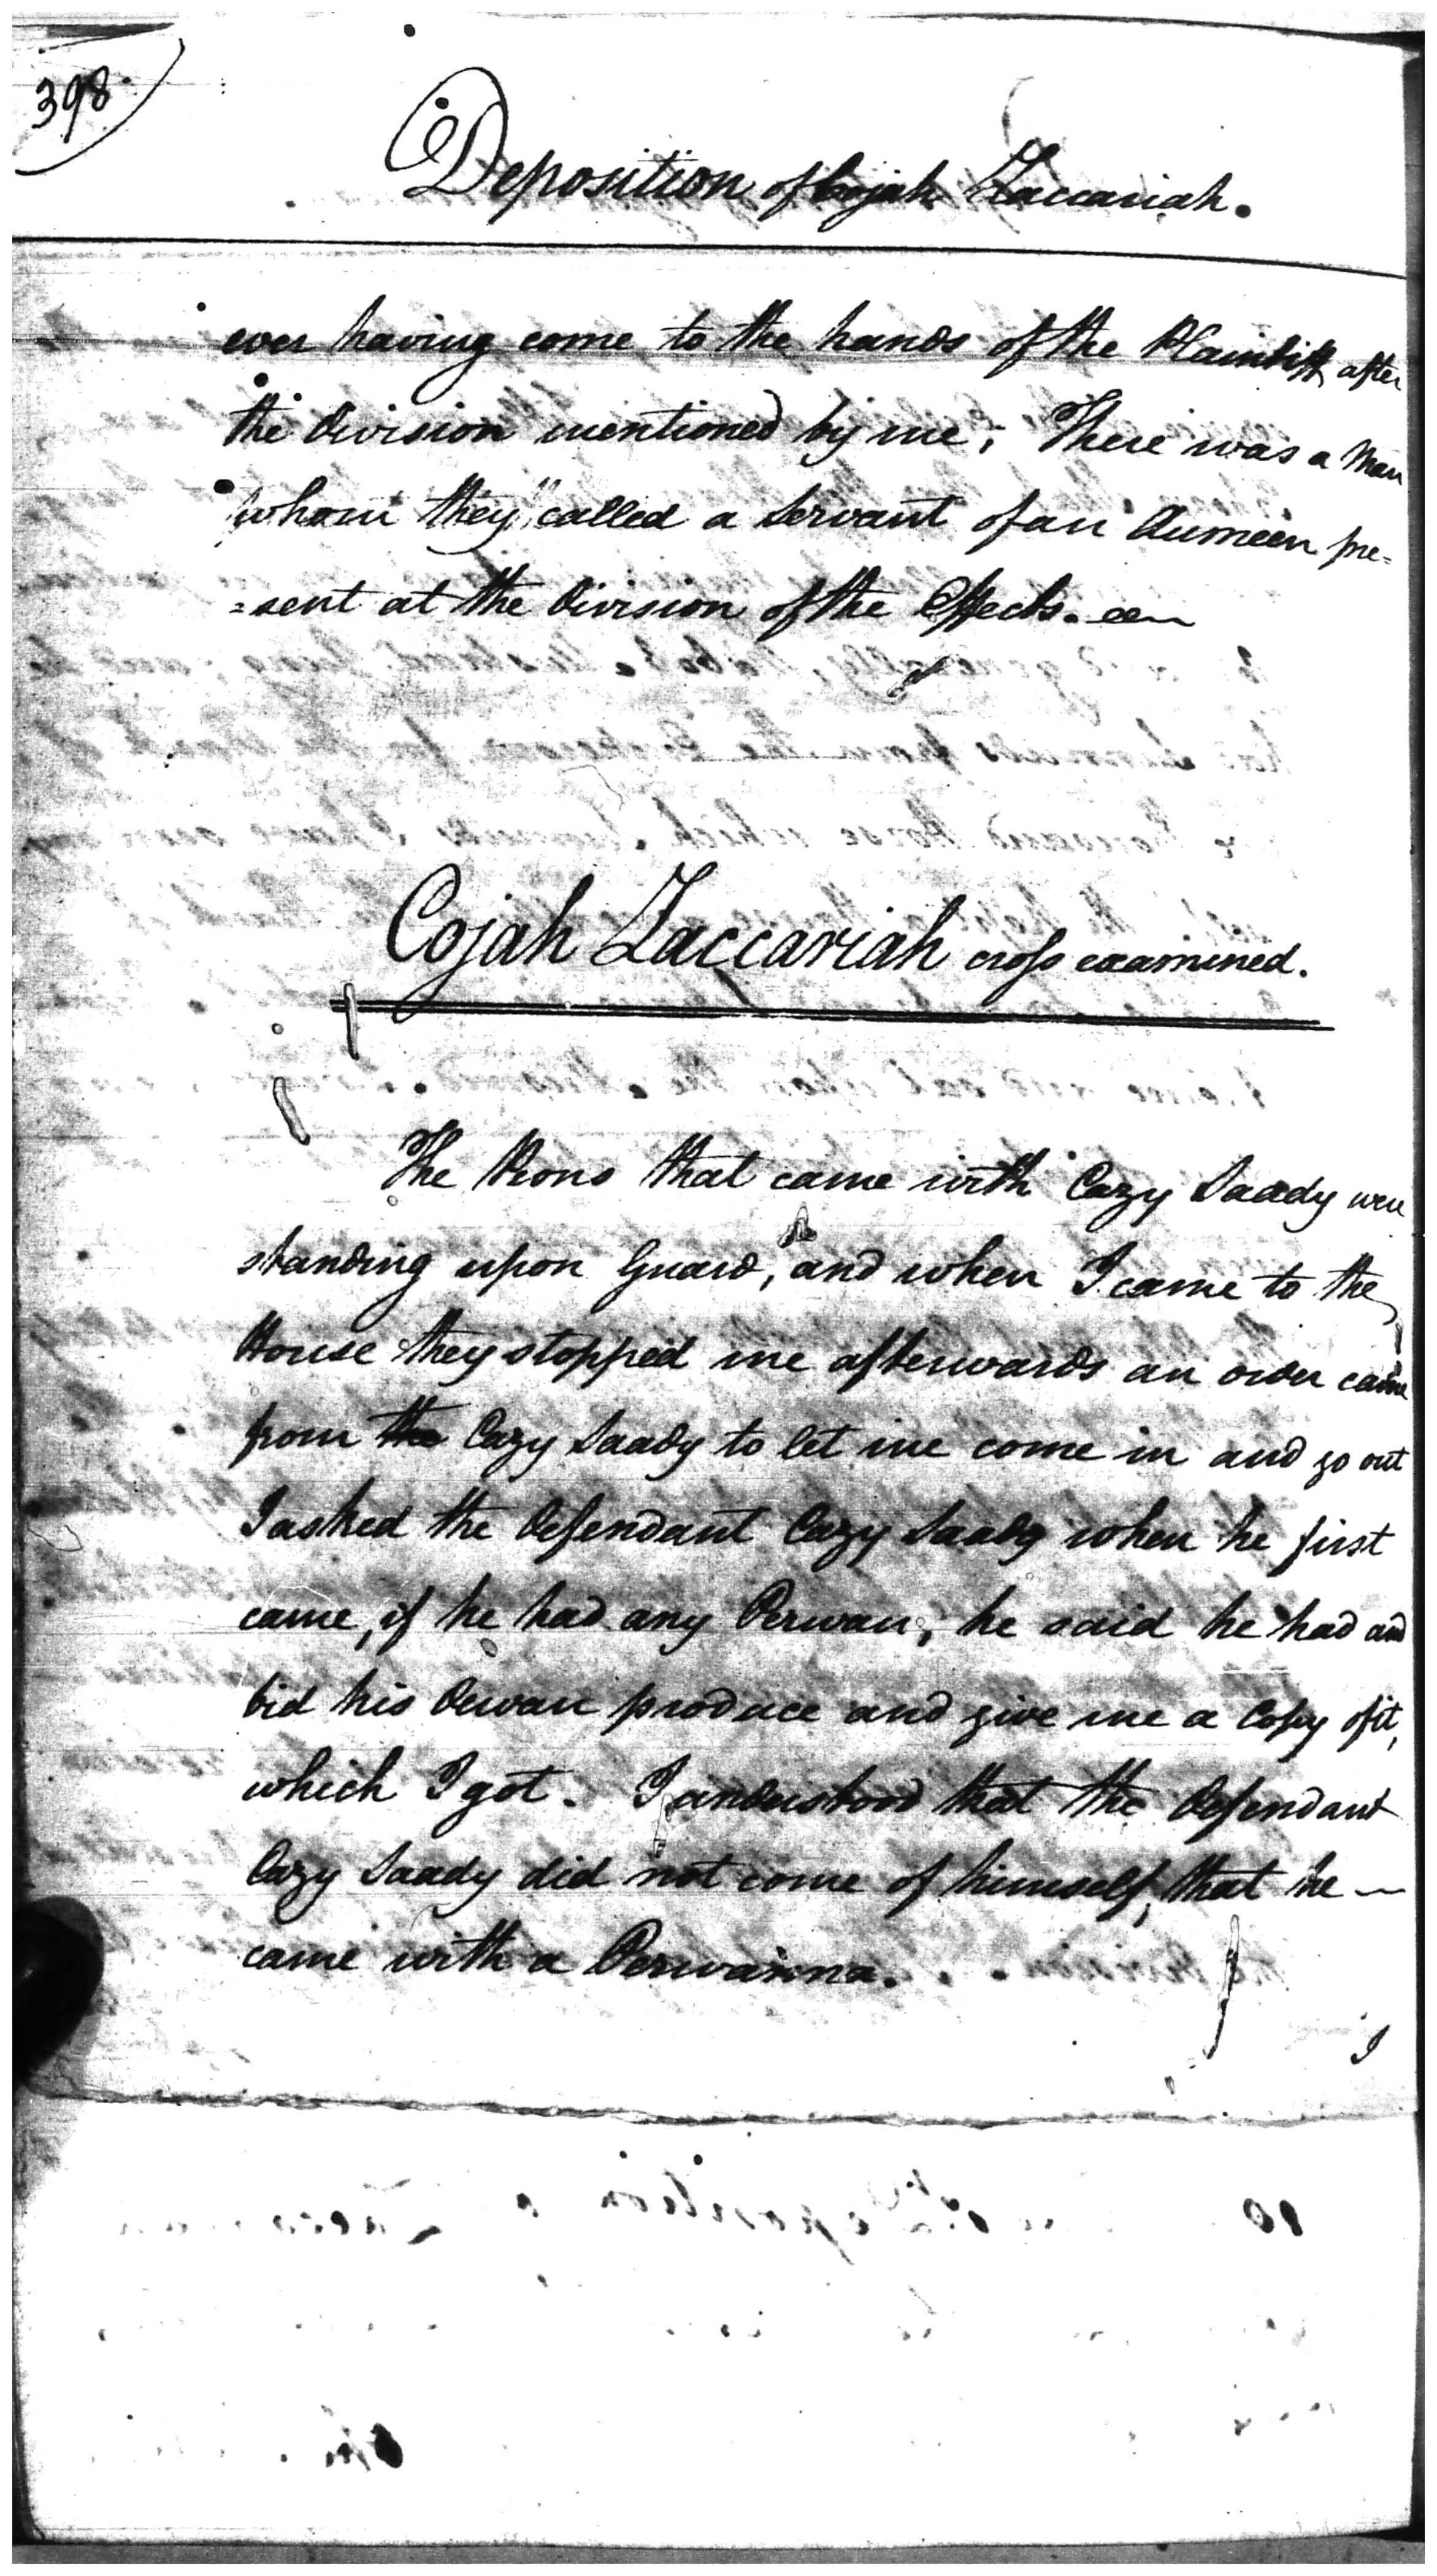 398
Deposition of Cojah Zaccariah.
ever having come to the hands of the Plaintiff after
the division mentioned by me; There was a Man
whom they called a Servant of an Aumeen pre=
=sent at the Division of the Effects.
Cojah Zaccariah cross examined.
The Peons that came with Cazy Saady were
standing upon Guard, and when I came to the
House they stopped me afterwards an order came
from the Cazy Saady to let me come in and go out
I asked the Defendant Cazy Saady when he first
came, if he had any Perwan, he said he had and
bid his Dewan produce and give me a Copy of it,
which I got. I understood that the Defendant
Cazy Saady did not come of himself, that he
came with a Perwanna.
I